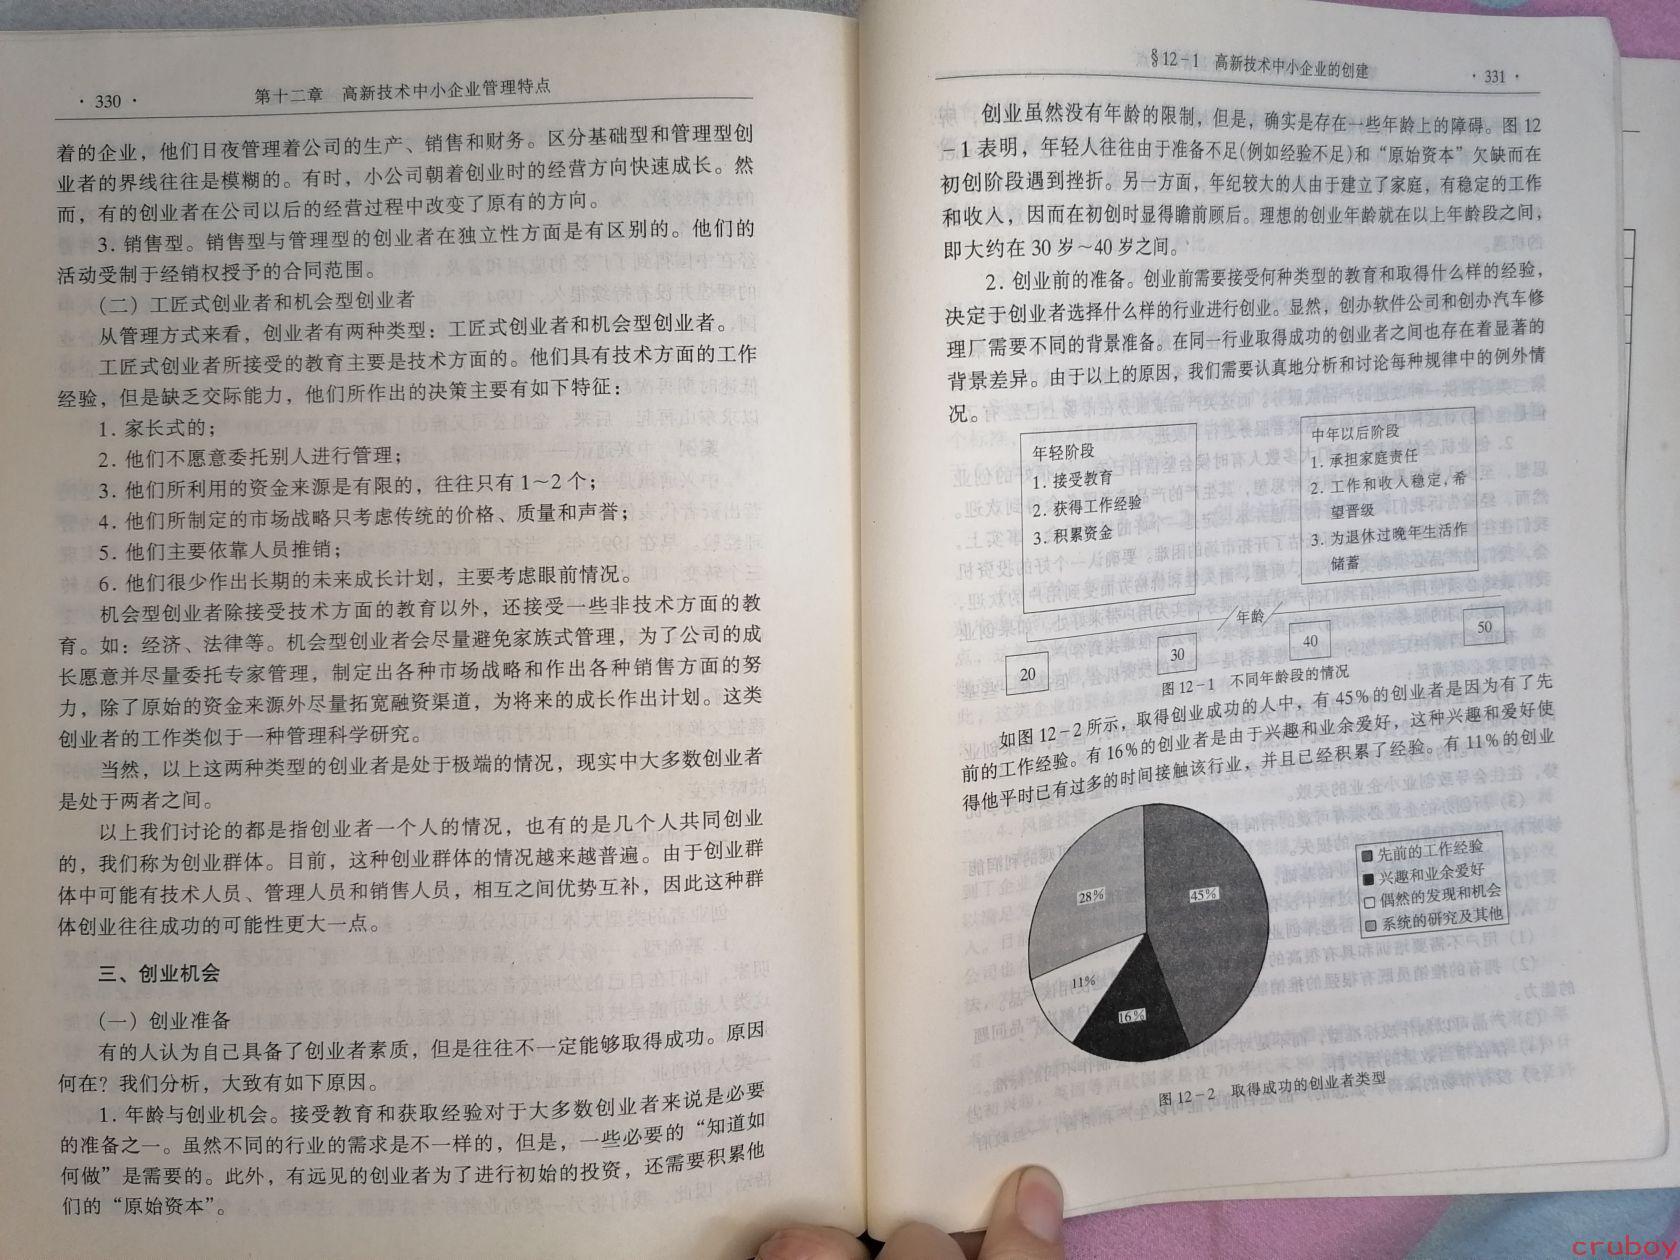 · 330 ·
第十二章 高新技术中小企业管理特点
着的企业，他们日夜管理着公司的生产、销售和财务。区分基础型和管理型创
业者的界线往往是模糊的。有时，小公司朝着创业时的经营方向快速成长。然
而，有的创业者在公司以后的经营过程中改变了原有的方向。
3. 销售型。销售型与管理型的创业者在独立性方面是有区别的。他们的
活动受制于经销权授予的合同范围。
（二）工匠式创业者和机会型创业者
从管理方式来看，创业者有两种类型：工匠式创业者和机会型创业者。
工匠式创业者所接受的教育主要是技术方面的。他们具有技术方面的工作
经验，但是缺乏交际能力，他们所作出的决策主要有如下特征：
1. 家长式的；
2. 他们不愿意委托别人进行管理；
3. 他们所利用的资金来源是有限的，往往只有1～2个；
4. 他们所制定的市场战略只考虑传统的价格、质量和声誉；
5. 他们主要依靠人员推销；
6. 他们很少作出长期的未来成长计划，主要考虑眼前情况。
机会型创业者除接受技术方面的教育以外，还接受一些非技术方面的教
育。如：经济、法律等。机会型创业者会尽量避免家族式管理，为了公司的成
长愿意并尽量委托专家管理，制定出各种市场战略和作出各种销售方面的努
力，除了原始的资金来源外尽量拓宽融资渠道，为将来的成长作出计划。这类
创业者的工作类似于一种管理科学研究。
当然，以上这两种类型的创业者是处于极端的情况，现实中大多数创业者
是处于两者之间。
以上我们讨论的都是指创业者一个人的情况，也有的是几个人共同创业
的，我们称为创业群体。目前，这种创业群体的情况越来越普遍。由于创业群
体中可能有技术人员、管理人员和销售人员，相互之间优势互补，因此这种群
体创业往往成功的可能性更大一点。
三、创业机会
（一）创业准备
有的人认为自己具备了创业者素质，但是往往不一定能够取得成功。原因
何在？我们分析，大致有如下原因。
1. 年龄与创业机会。接受教育和获取经验对于大多数创业者来说是必要
的准备之一。虽然不同的行业的需求是不一样的，但是，一些必要的“知道如
何做”是需要的。此外，有远见的创业者为了进行初始的投资，还需要积累他
们的“原始资本”。
§12－1 高新技术中小企业的创建
· 331 ·
创业虽然没有年龄的限制，但是，确实是存在一些年龄上的障碍。图12
－1表明，年轻人往往由于准备不足(例如经验不足)和“原始资本”欠缺而在
初创阶段遇到挫折。另一方面，年纪较大的人由于建立了家庭，有稳定的工作
和收入，因而在初创时显得瞻前顾后。理想的创业年龄就在以上年龄段之间，
即大约在30岁～40岁之间。
2. 创业前的准备。创业前需要接受何种类型的教育和取得什么样的经验，
决定于创业者选择什么样的行业进行创业。显然，创办软件公司和创办汽车修
理厂需要不同的背景准备。在同一行业取得成功的创业者之间也存在着显著的
背景差异。由于以上的原因，我们需要认真地分析和讨论每种规律中的例外情
况。
年轻阶段
1. 接受教育
2. 获得工作经验
3. 积累资金
中年以后阶段
1. 承担家庭责任
2. 工作和收入稳定，希
望晋级
3. 为退休过晚年生活作
储蓄
年龄
20
30
40
50
图12－1 不同年龄段的情况
如图12－2所示，取得创业成功的人中，有45%的创业者是因为有了先
前的工作经验。有16%的创业者是由于兴趣和业余爱好，这种兴趣和爱好使
得他平时已有过多的时间接触该行业，并且已经积累了经验。有11%的创业
28%
45%
11%
16%
先前的工作经验
兴趣和业余爱好
偶然的发现和机会
系统的研究及其他
图12－2 取得成功的创业者类型
cruboy